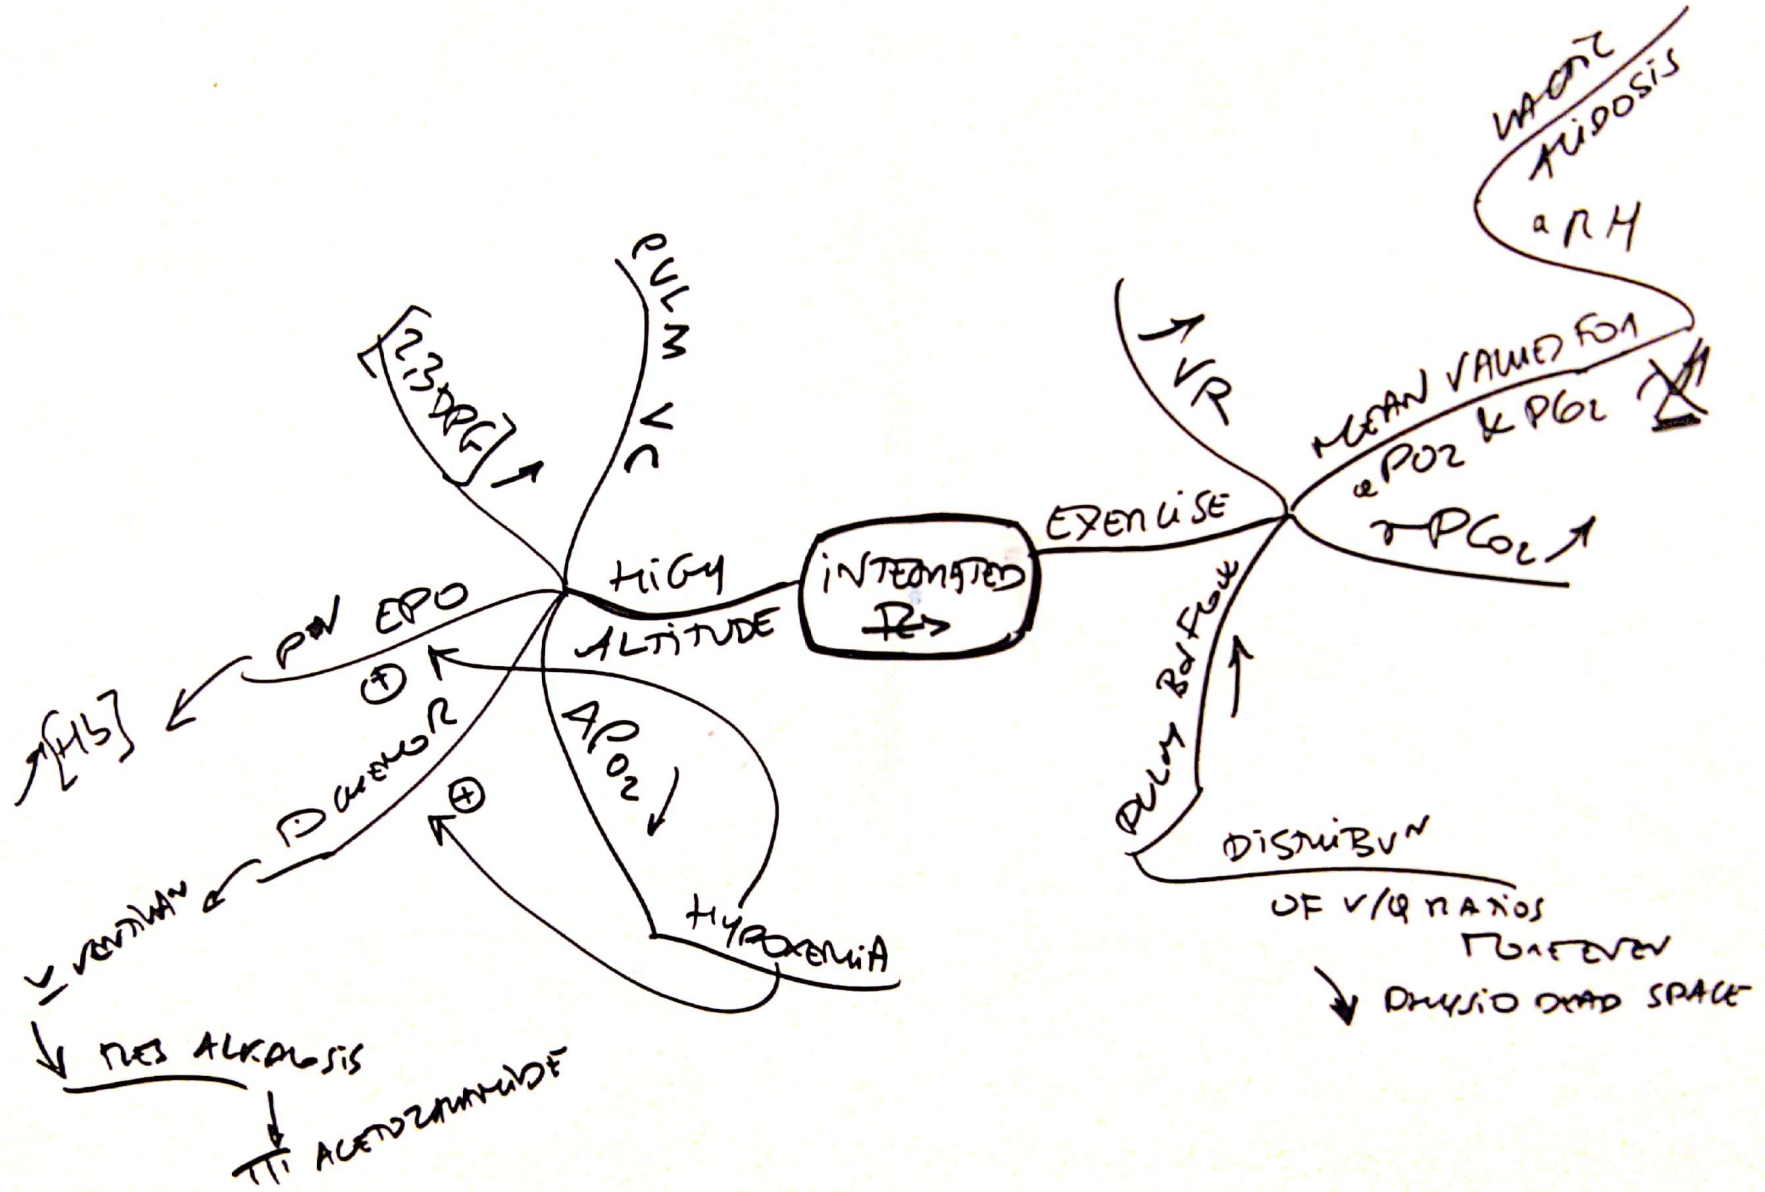 INTEGRATED
R→
HIGH
ALTITUDE
PULM VC
[2,3 DPG] ↗
EPO
⊕
↗[Hb]
CHEMOR
⊕
VENTILAN
RES ALKALOSIS
ACETOZALAMIDE
APO2 ↓
HYPOXEMIA
EXERCISE
↗ VR
MEAN VALUES FOR
aPO2 & PCO2
aPH
LACTIC
ACIDOSIS
PCO2 ↗
PULM Bd FLOW ↑
DISTRIBUN
OF V/Q RATIOS
↘ PHYSIO DEAD SPACE